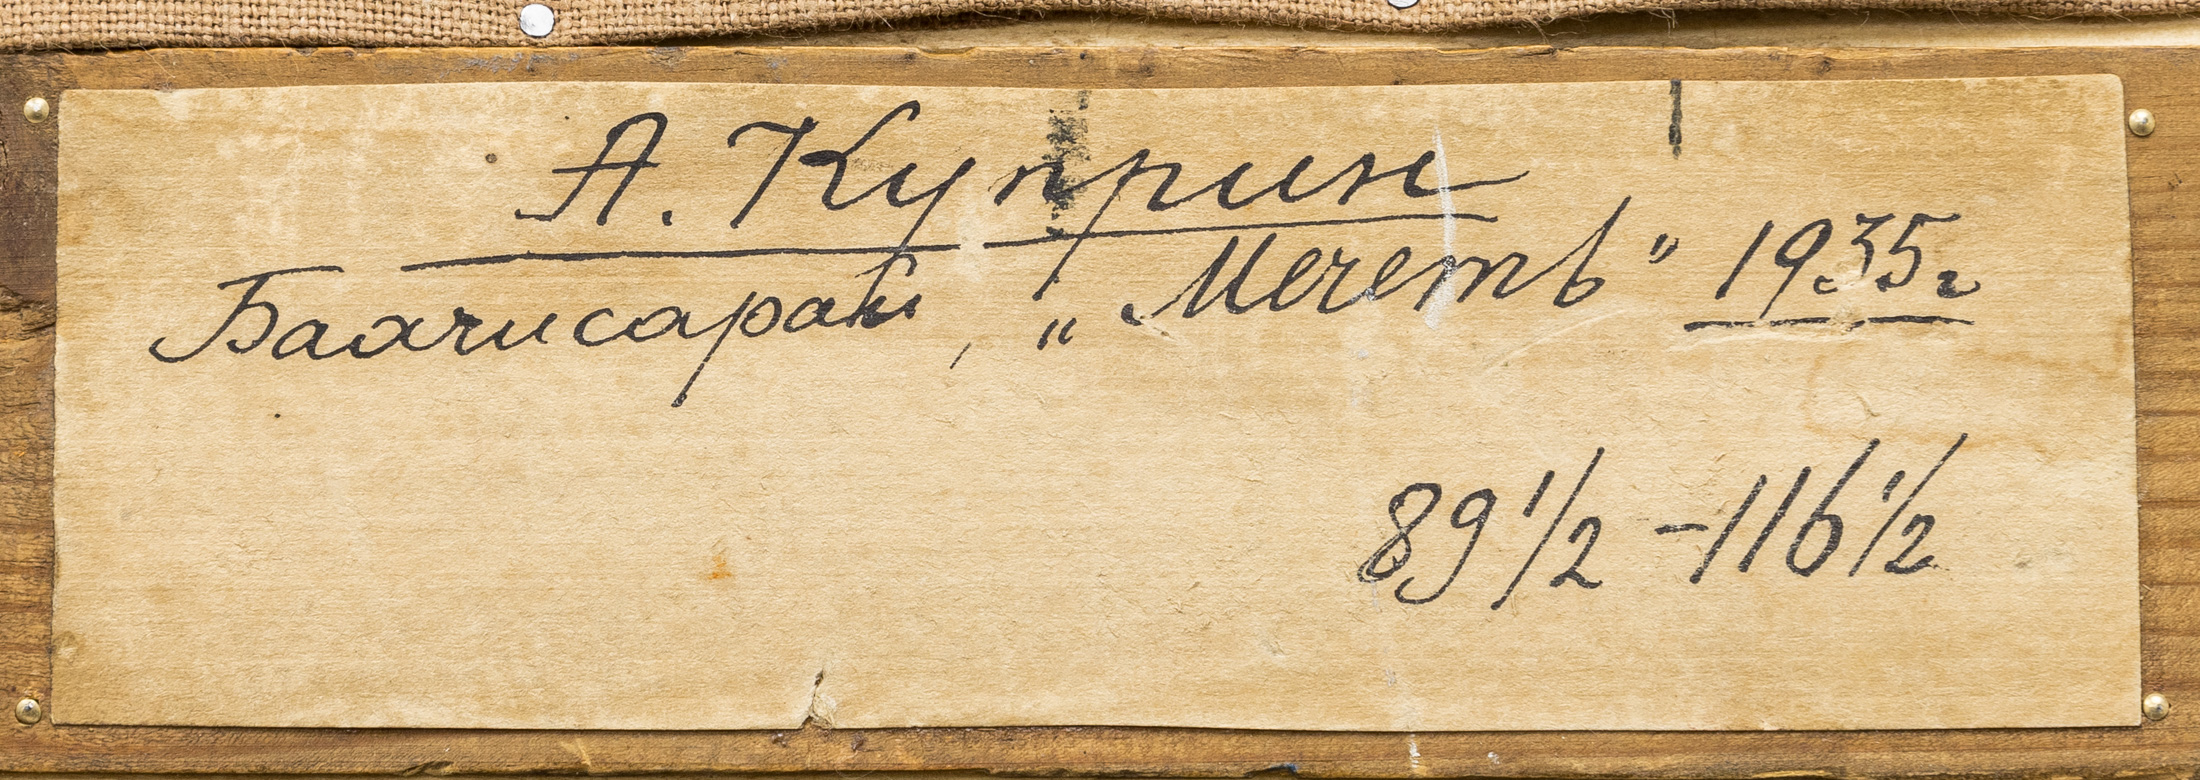 А. Куприн
Бахчисарай, „Мечеть" 1935г
89 1/2 – 116 1/2